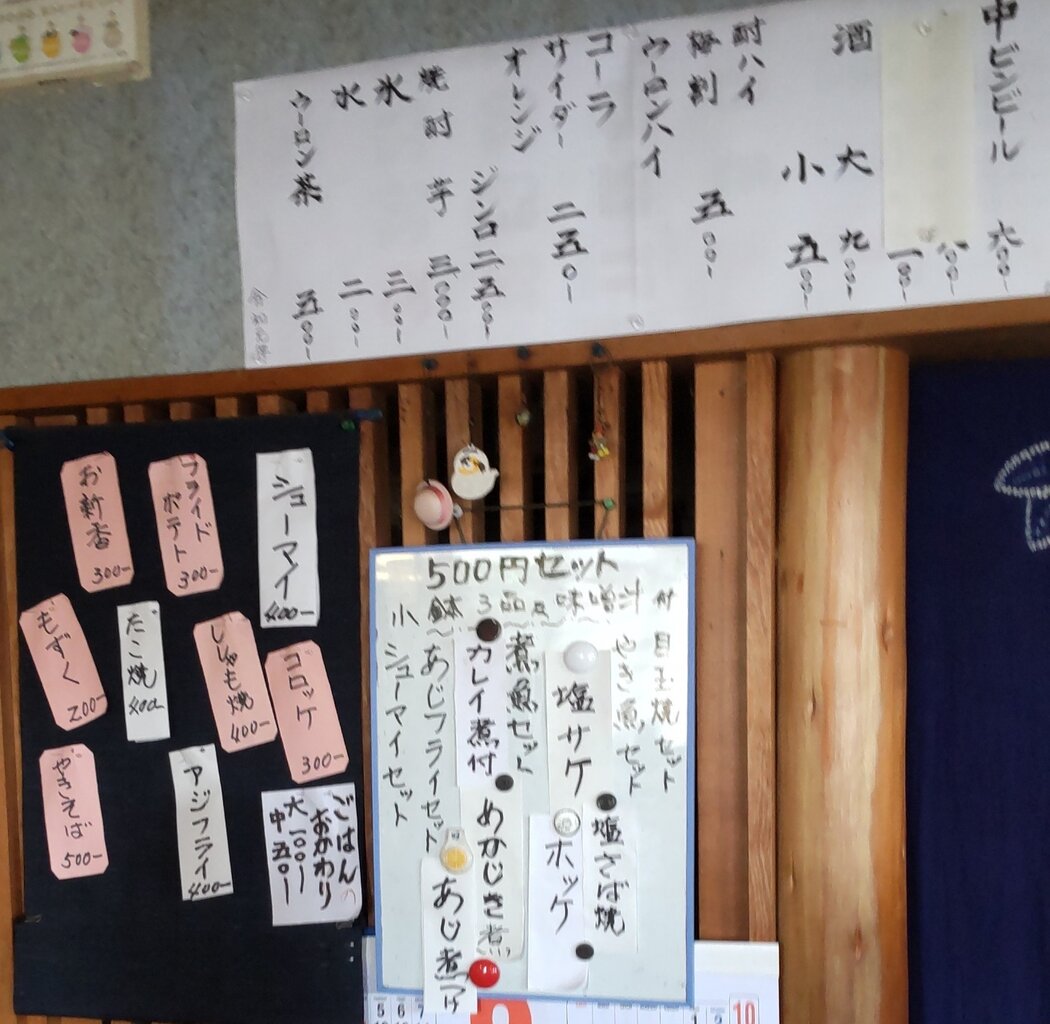 中ビンビール 六〇〇ー
八〇〇ー
一〇〇ー
酒 大 九〇〇ー
小 五〇〇ー
酎ハイ
梅割 五〇〇ー
ウーロンハイ
コーラ
サイダー 二五〇ー
オレンジ
ジンロ 二五〇〇ー
焼酎 芋 三〇〇〇ー
氷 三〇〇ー
水 二〇〇ー
ウーロン茶 五〇〇ー
シューマイ 400-
フライドポテト 300-
お新香 300-
コロッケ 300-
ししゃも焼 400-
たこ焼 400-
もずく 200-
ごはんの
おかわり
大一〇〇ー
中五〇ー
アジフライ 400-
やきそば 500-
500円セット
小鉢3品及味噌汁付
目玉焼セット
やき魚セット
塩サケ
塩さば焼
ホッケ
煮魚セット
カレイ煮付
めかじき煮
あじ煮つけ
あじフライセット
シューマイセット
5 6 7
1 2
10